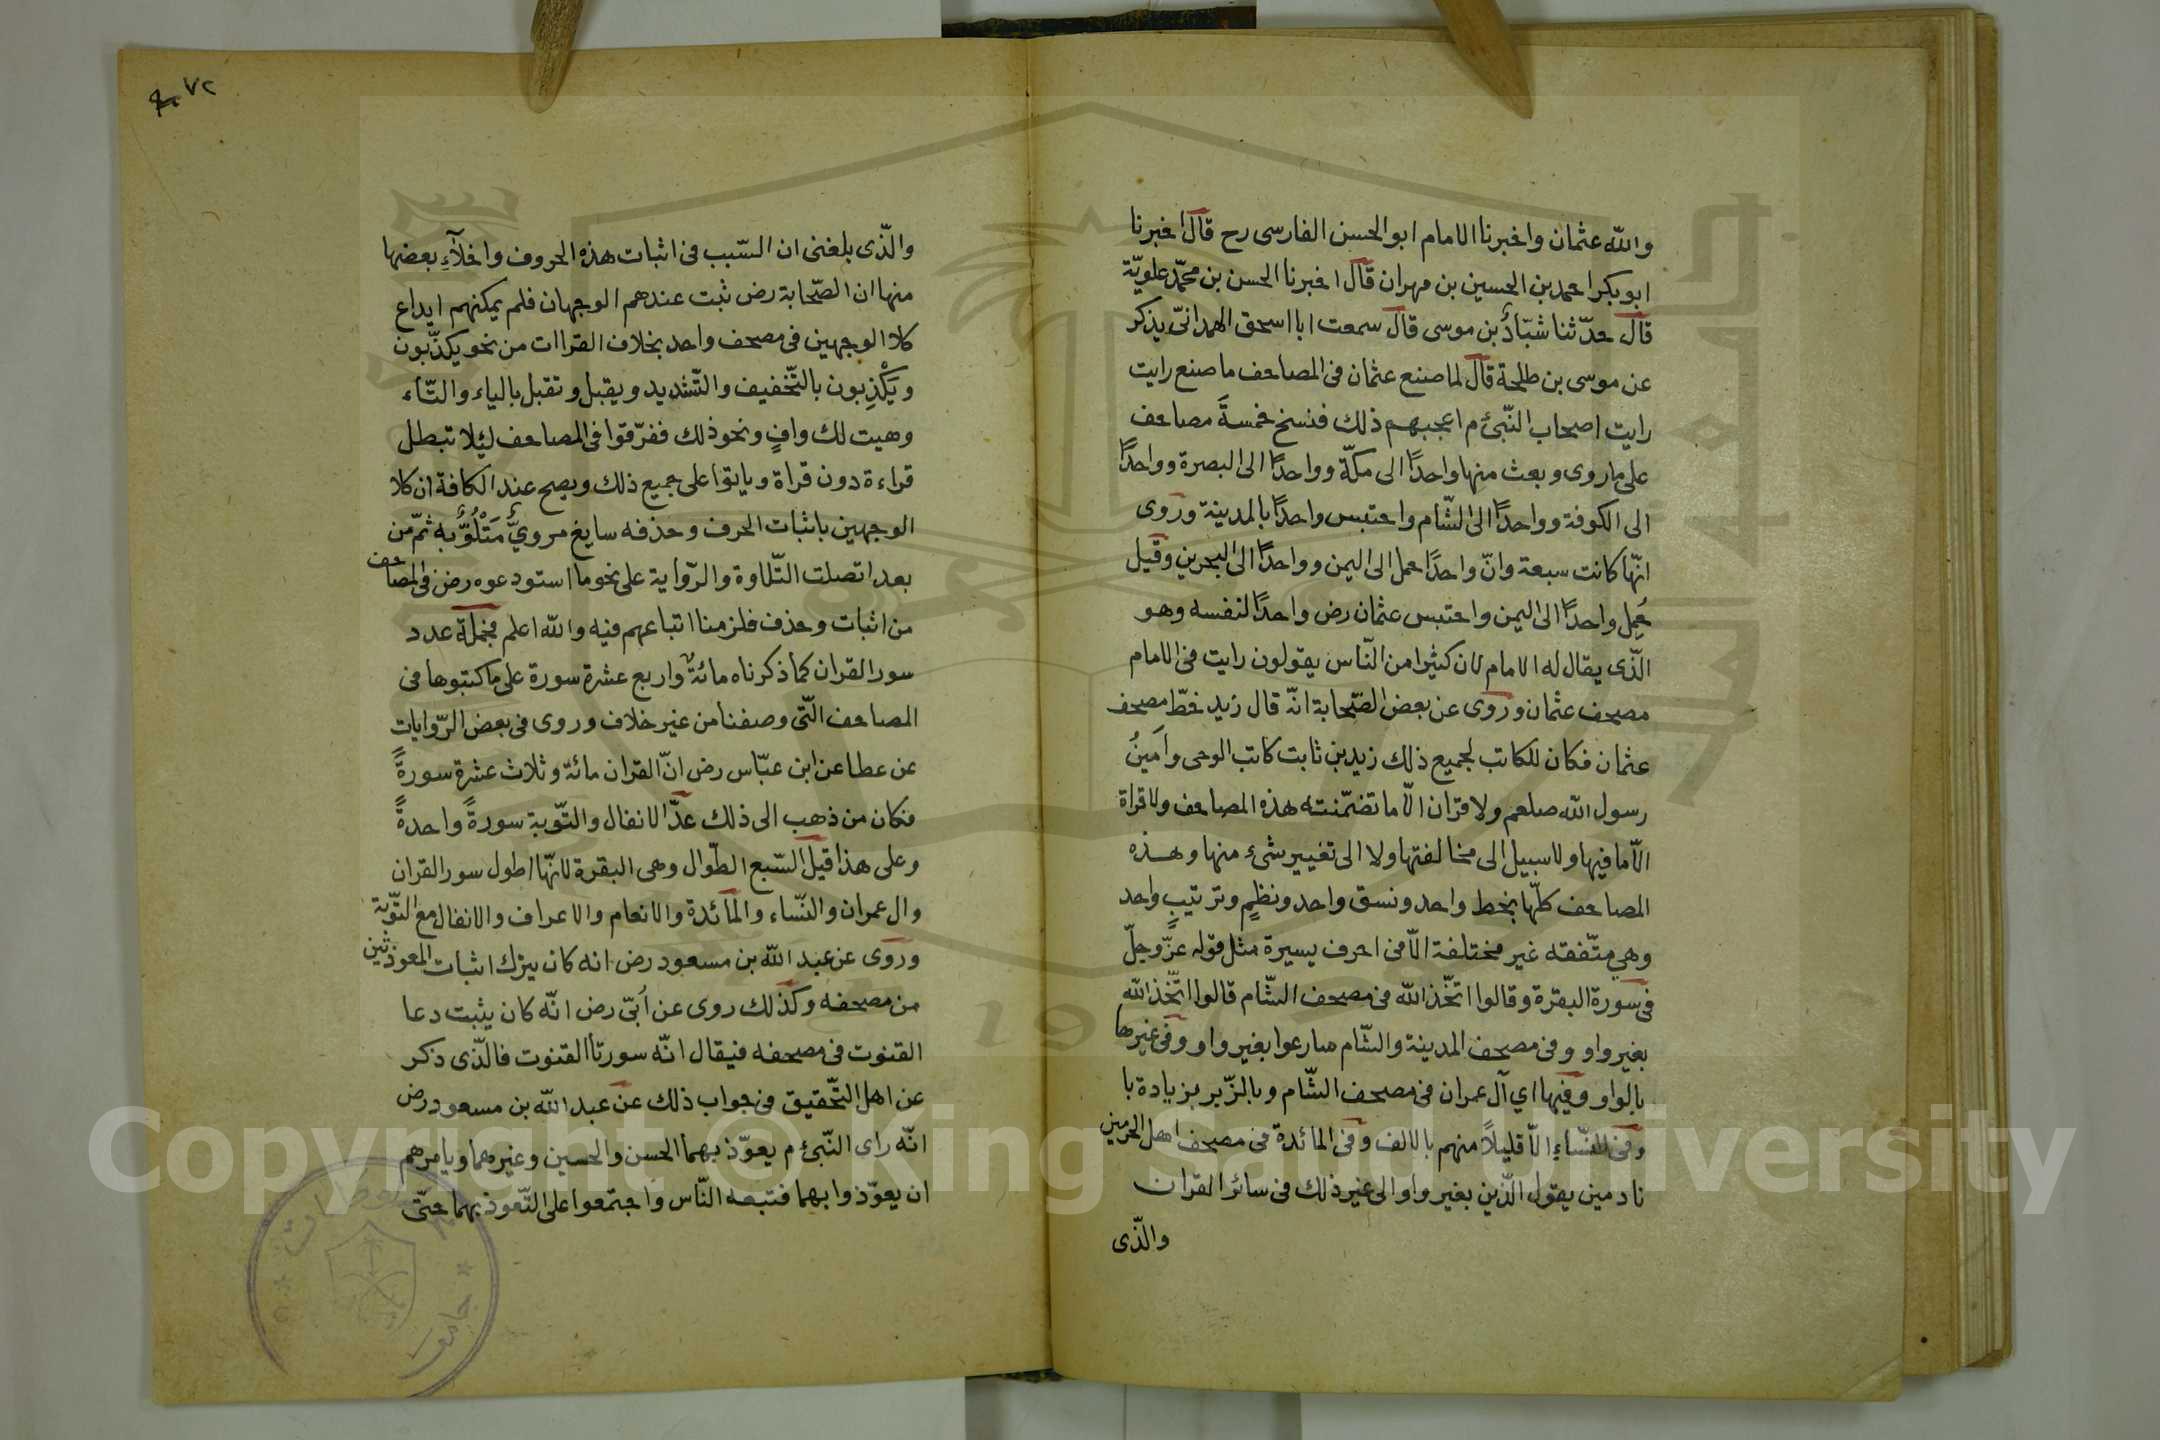 والله عثمان واخبرنا الامام ابو الحسن الفارسى رح قال اخبرنا
ابو بكر احمد بن الحسين بن مهران قال اخبرنا الحسن بن محمّد علويّة
قال حدّثنا شبّادُ بن موسى قال سمعت ابا اسحق الهمدانىّ يذكر
عن موسى بن طلحة قال لما صنع عثمان فى المصاحف ما صنع رايت
رايت اصحاب النّبىّ م اعجبهم ذلك فنسخ خمسةَ مصاحف
على ما روى وبعث منها واحدًا الى مكّة وواحدًا الى البصرة وواحدًا
الى الكوفة وواحدًا الى الشّام واحتبس واحدًا بالمدينة وروى
انّها كانت سبعة وانّ واحدًا حمل الى اليمن وواحدًا الى البحرين وقيل
حُمِل واحدًا الى اليمن واحتبس عثمان رض واحدًا لنفسه وهو
الّذى يقال له الامام لان كثيرا من النّاس يقولون رايت فى الامام
مصحف عثمان وروى عن بعض الصّحابة انّه قال زيد خطّ مصحف
عثمان فكان للكاتب لجميع ذلك زيد بن ثابت كاتب الوحى وامينُ
رسول الله صلعم ولا قران الّا ما تضمّنته هذه المصاحف ولا قراة
الّا ما فيها ولا سبيل الى مخالفتها ولا الى تغيير شىء منها وهذه
المصاحف كلّها بخط واحد ونسق واحد ونظمٍ وترتيبٍ واحد
وهي متّفقه غير مختلفة الّا فى احرف يسيرة مثل قوله عزّ وجلّ
فى سورة البقرة وقالوا اتّخذ الله فى مصحف الشّام قالوا اتّخذ الله
بغير واو وفى مصحف المدينة والشّام سارعوا بغير واو وفى غيرها
بالواو وفيها اي آل عمران فى مصحف الشّام وبالزّبر بزيادة با
وفى النّساءِ الّا قليلًا منهم بالالف وفى المائدة فى مصحف اهل الحرمين
نادمين يقول الّذين بغير واو الى غير ذلك فى سائر القران
والّذى
٧٢
والّذى بلغنى ان السّبب فى اثبات هذه الحروف واخلآءِ بعضها
منها ان الصّحابة رض ثبت عندهم الوجهان فلم يمكنهم ايداع
كلا الوجهين فى مصحف واحد بخلاف القراات من نحو يكذّبون
ويَكْذِبون بالتّخفيف والتّشديد ويقبل وتقبل بالياء والتّاء
وهيت لك وافٍ ونحو ذلك ففرّقوا فى المصاحف لئلا تبطل
قراءة دون قراة وياتوا على جميع ذلك ويصح عند الكافة ان كلا
الوجهين باثبات الحرف وحذفه سايغ مرويٌّ مَتْلُوٌّ به ثمّ من
بعد اتصلت التّلاوة والرّواية على نحو ما استودعوه رض فى المصاحف
من اثبات وحذف فلزمنا اتباعهم فيه والله اعلم فجملة عدد
سور القران كما ذكرناه مائةٌ واربع عشرة سورة على ما كتبوها فى
المصاحف الّتى وصفنا من غير خلاف وروى فى بعض الرّوايات
عن عطا عن ابن عبّاس رض انّ القران مائة وثلاث عشرة سورةً
فكان من ذهب الى ذلك عدّ الانفال والتّوبة سورةً واحدةً
وعلى هذا قيل السّبع الطّوال وهى البقرة لانّها اطول سور القران
وال عمران والنّساء والمائدة والانعام والاعراف والانفال مع التّوبة
وروى عن عبد الله بن مسعود رض انه كان يترك اثبات المعوذتين
من مصحفه وكذلك روى عن اُبىّ رض انّه كان يثبت دعا
القنوت فى مصحفه فيقال انّه سورتا القنوت فالّذى ذكر
عن اهل التّحقيق فى جواب ذلك عن عبد الله بن مسعود رض
انّه راى النّبىّ م يعوّذ بهما الحسن والحسين وغيرهما ويامرهم
ان يعوّذوا بهما فتبعه النّاس واجتمعوا على التّعوذ بهما حتّى
Copyright © King Saud University